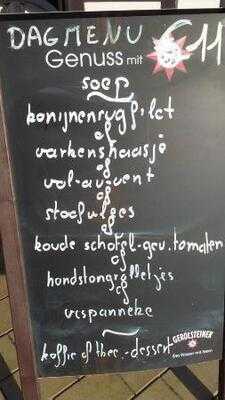 DAGMENU €11
Genuss mit
soep
konijnenrugfilet
of
varkenshaasje
of
vol-au-vent
of
stoofvlees
of
koude schotel-gev. tomaten
of
hondstongrolletjes
of
vispanneke
koffie of thee -dessert
GEROLSTEINER
Das Wasser mit Stern